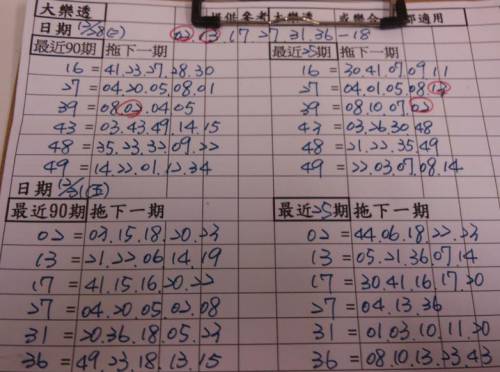 大樂透 提供參考 大樂透 或樂合 部適用
日期 12/28(二) 02.13.17.27.31.36-18
最近90期 拖下一期 最近25期 拖下一期
16 = 41.23.27.28.30 16 = 30.41.07.09.11
27 = 04.20.05.08.01 27 = 04.01.05.08.13
39 = 08.02.04.05 39 = 08.10.07.02
43 = 03.43.49.14.15 43 = 03.26.30.48
48 = 35.23.32.09.22 48 = 21.22.35.49
49 = 14.22.01.12.34 49 = 22.03.07.08.14
日期 12/31(五)
最近90期 拖下一期 最近25期 拖下一期
02 = 03.15.18.20.23 02 = 44.06.18.22.23
13 = 21.22.06.14.19 13 = 05.21.36.07.14
17 = 41.15.16.20.22 17 = 30.41.16.17.20
27 = 04.20.05.02.08 27 = 04.13.36
31 = 20.36.18.05.23 31 = 01.03.10.11.20
36 = 49.23.18.13.15 36 = 08.10.13.23.43